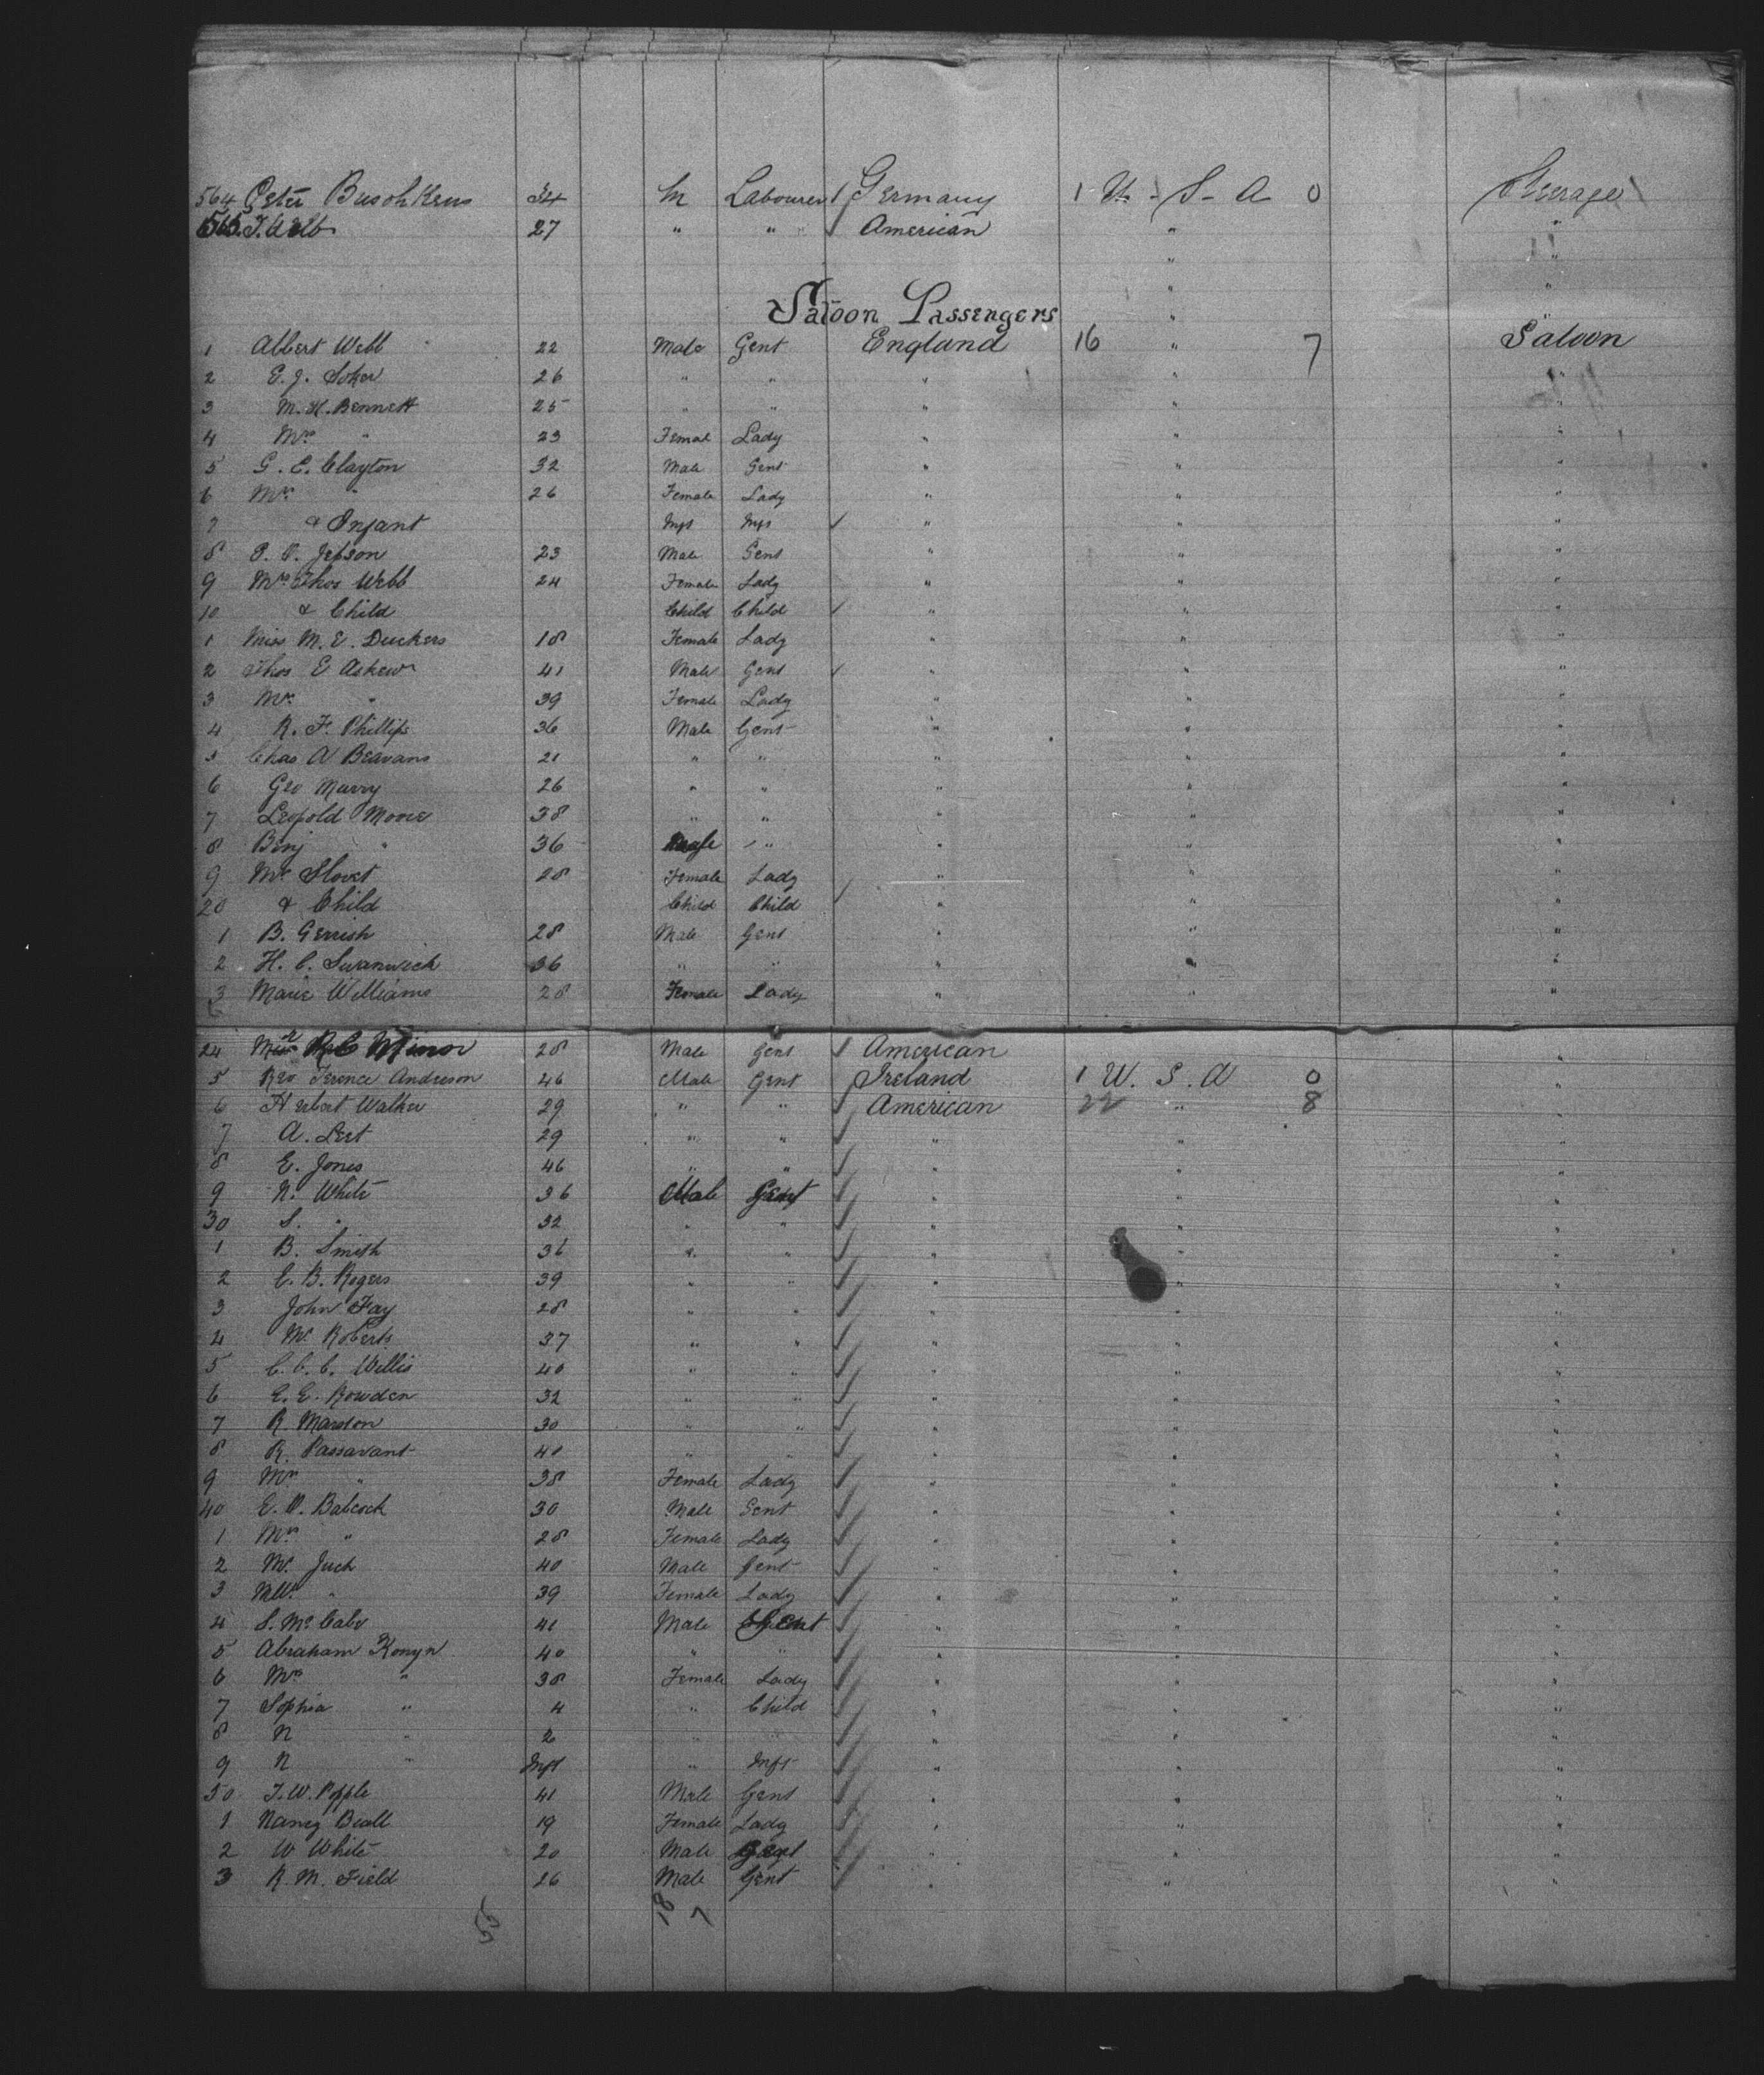 564 Peter Buschkens 34 M Labourer Germany 1 U. S. A 0 Steerage
565 27 " " American " "
" "
" "
Saloon Passengers "
1 Albert Webb 22 Male Gent England 16 " 7 Saloon
2 E. J. Soker 26 " " " " "
3 M. H. Bennett 25 " " " " "
4 Mrs " 23 Femal Lady " " "
5 G. E. Clayton 32 Male Gent " " "
6 Mrs " 26 Female Lady " " "
7 & Infant Inft Inft " " "
8 Jepson 23 Male Gent " " "
9 Mrs Thos Webb 24 Female Lady " " "
10 & Child Child Child " " "
1 Miss M. E. Duckers 18 Female Lady " " "
2 Thos E Askew 41 Male Gent " " "
3 Mrs " 39 Female Lady " " "
4 R. F. Phillips 36 Male Gent " " "
5 Chas A Beavans 21 " " " " "
6 Geo Murry 26 " " " " "
7 Leopold Morse 38 " " " " "
8 Benj " 36 Male " " " "
9 Mrs 28 Female Lady " " "
20 & Child Child Child " " "
1 B. Gerrish 28 Male Gent " " "
2 H. C. Swanwick 36 " " " " "
3 Marie Williams 28 Female Lady " " "
24 Minor 28 Male Gent American "
5 Rev Terence Anderson 46 Male Gent Ireland 1 U. S. A 0 "
6 Herbert Walker 29 " " American 22 " 8 "
7 A. 29 " " " " "
8 E. Jones 46 " " " " "
9 N. White 36 Male Gent " " "
30 S. " 32 " " " " "
1 B. Smith 36 " " " " "
2 C. B. Rogers 39 " " " " "
3 John Fay 28 " " " " "
4 Mr Roberts 37 " " " " "
5 C. C. C. Willis 40 " " " " "
6 E. E. Rowden 32 " " " " "
7 R. Marston 30 " " " " "
8 R. Passavant 41 " " " " "
9 Mrs " 38 Female Lady " " "
40 E. P. Babcock 30 Male Gent " " "
1 Mrs " 28 Female Lady " " "
2 Mr. Juch 40 Male Gent " " "
3 Mrs " 39 Female Lady " " "
4 S. McCabe 41 Male Gent " " "
5 Abraham Konyn 40 " " " " "
6 Mrs " 38 Female Lady " " "
7 Sophia " 4 " Child " " "
8 N " 2 " " " " "
9 N " Inft " Inft " " "
50 J. W. Popple 41 Male Gent " " "
1 Nancy Beall 19 Female Lady " " "
2 W White 20 Male Gent " " "
3 R. M. Field 26 Male Gent " " "
53 18 7